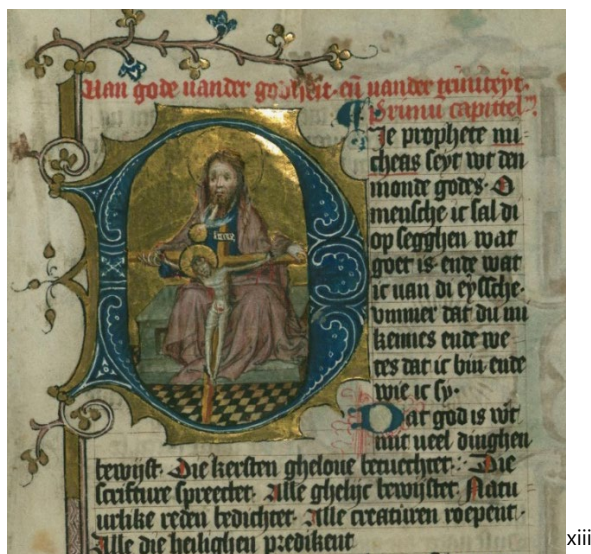 Uan gode uander godheit· en̄ uander triniteyt·
Primū capittel
Die prophete mi=
cheas seyt wt den
monde godes· O
mensche ic sal di
op segghen wat
goet is· ende wat
ic uan di eyssche·
vmmer dat du mi
kennes ende we
tes dat ic bin ende
wie ic sy·
Dat god is wt
mit ueel dinghen
bewijst· Die kersten gheloue betuechtet· Die
scrifture spreectet· Alle ghelijc bewijstet· Natu
urlike reden bedichtet· Alle creaturen roepent·
Alle die heilighen predikent
xiii